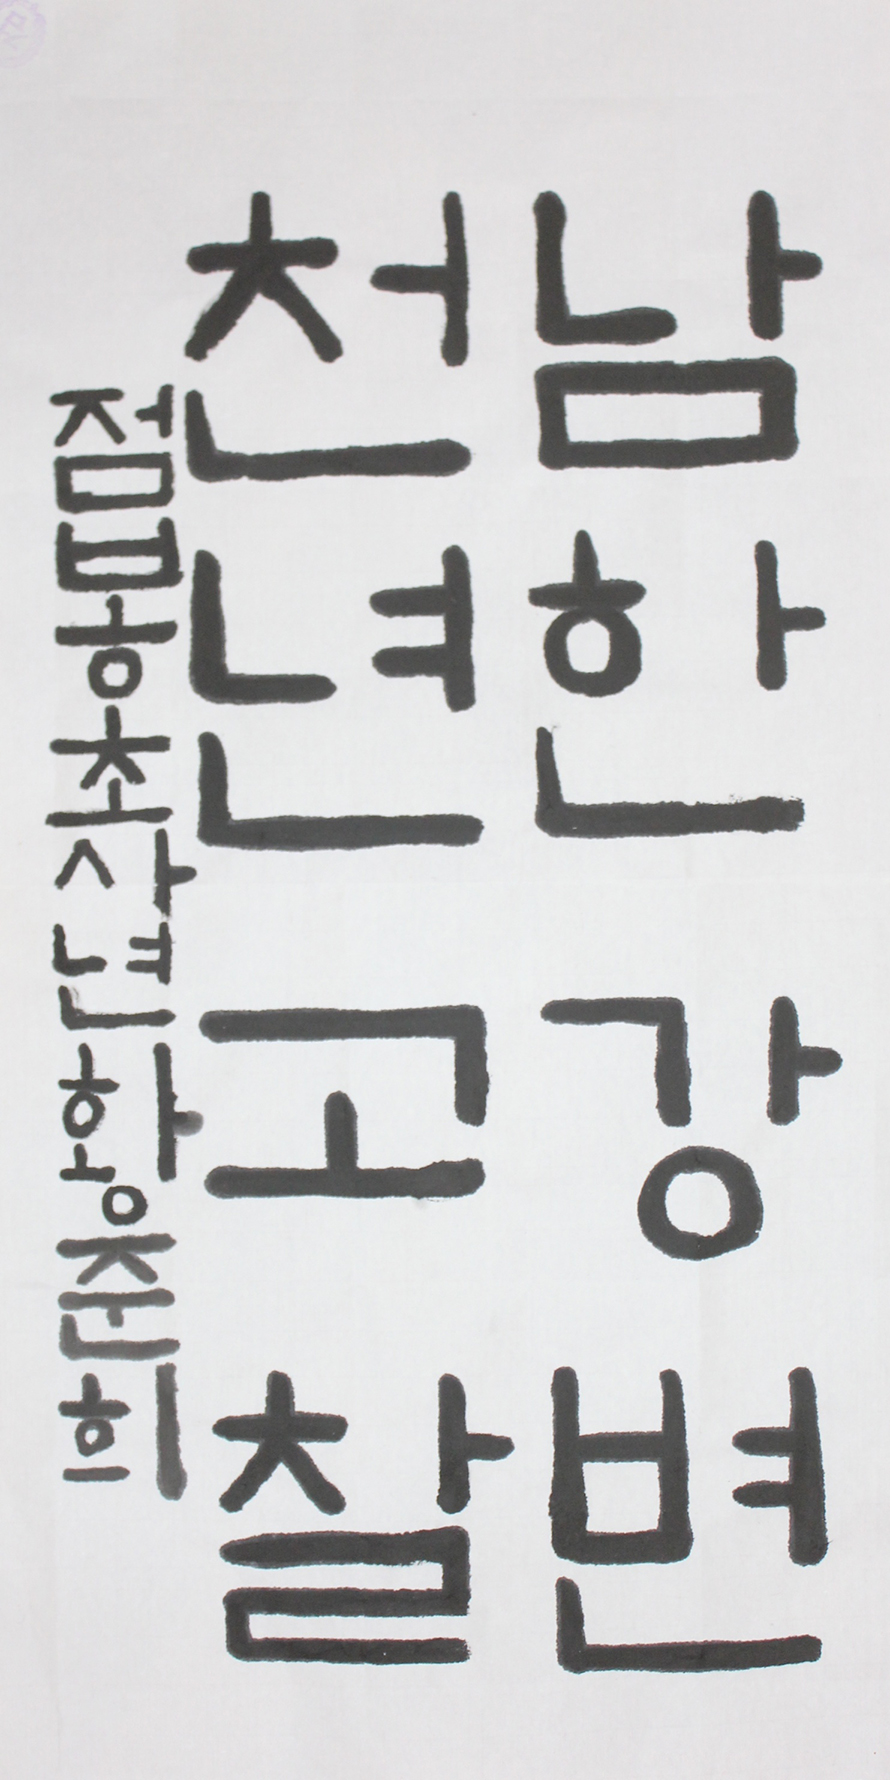 남한강변
천년고찰
점봉초사년황준희